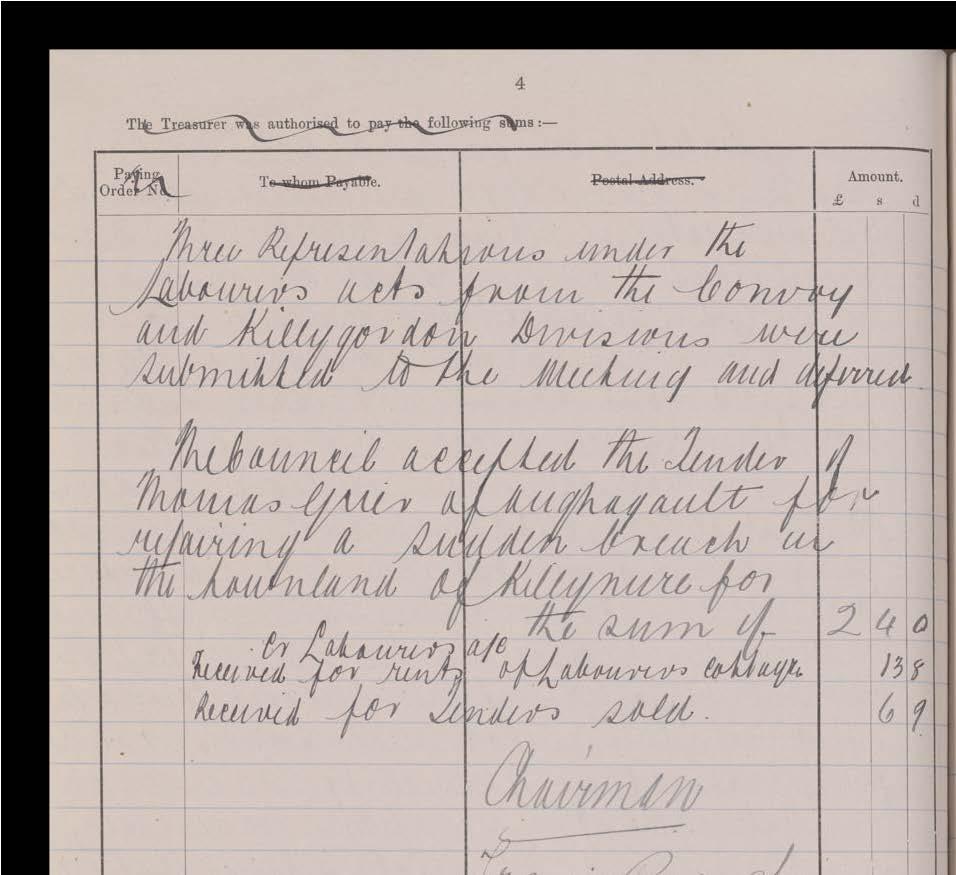 4
The Treasurer was authorised to pay the following sums :—
Paying Order No. To whom Payable. Postal Address. Amount.
£ s d
Three Representations under the
Labourers acts from the Convoy
and Killygordon Divisions were
submitted to the Meeting and deferred.
The Council accepted the Tender of
Thomas Grier of aughagault for
repairing a sudden breach in
the townland of Killynure for
the sum of 2 4 0
Cr Labourers a/c
Received for rents of Labourers cottages 13 8
Received for Tenders sold. 6 9
Chairman